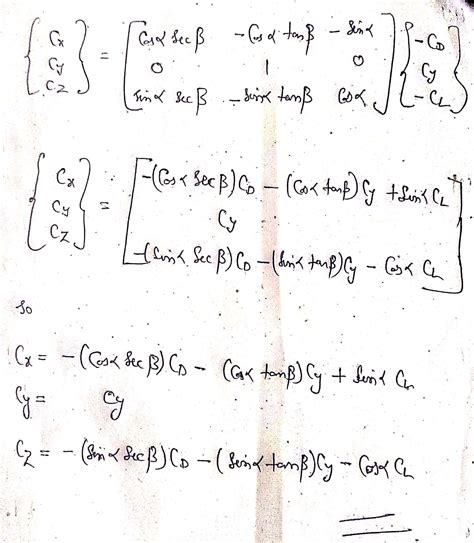 { Cx } = [ Cosα secβ   -Cosα tanβ   -sinα ] { -CD }
{ Cy }   [ 0   1   0 ] { Cy }
{ CZ }   [ sinα secβ   -sinα tanβ   Cosα ] { -CL }
{ Cx } = [ -(Cosα secβ)CD - (Cosα tanβ)Cy + sinα CL ]
{ Cy }   [ Cy ]
{ CZ }   [ -(sinα secβ)CD - (sinα tanβ)Cy - Cosα CL ]
So
Cx = -(Cosα secβ)CD - (Cosα tanβ)Cy + sinα CL
Cy = Cy
CZ = -(sinα secβ)CD - (sinα tanβ)Cy - Cosα CL